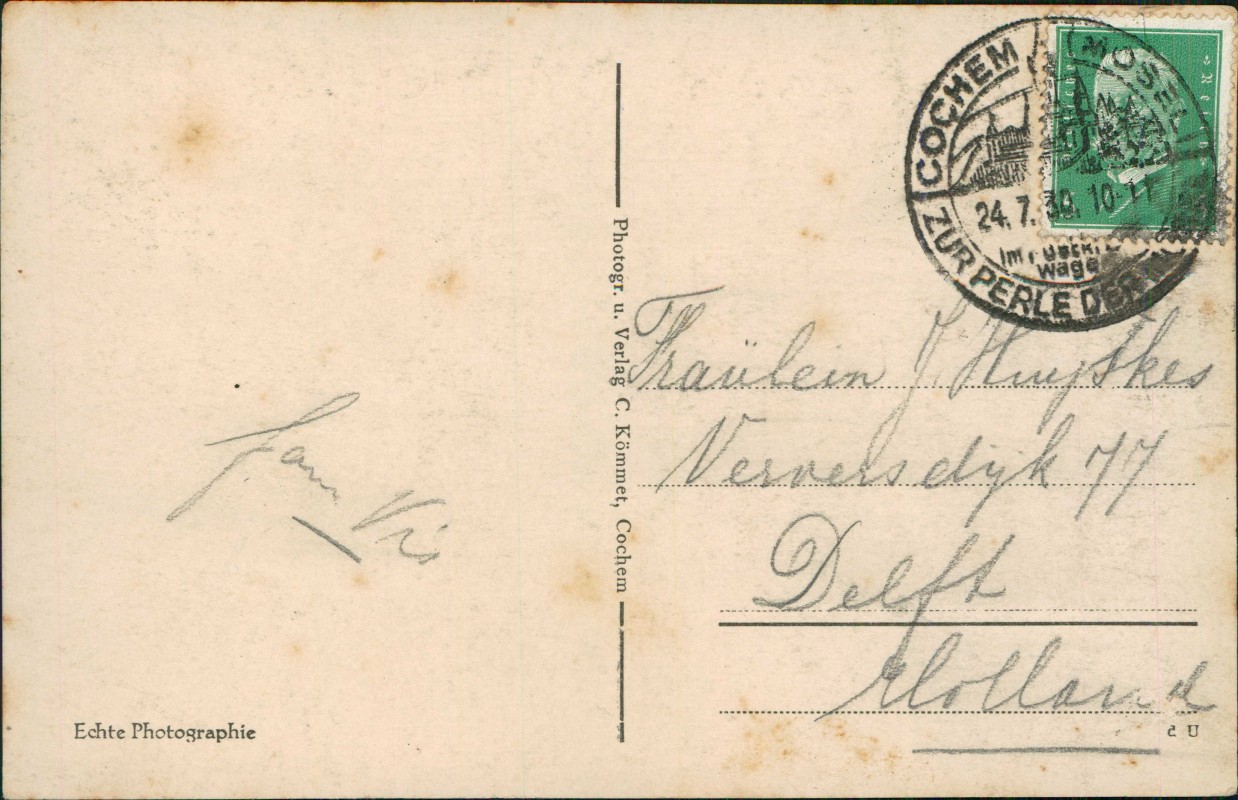 COCHEM (MOSEL)
24.7.30. 10-11
ZUR PERLE DER
Photogr. u. Verlag C. Kömmet, Cochem
Fräulein J. Huijskes
Ververs dijk 77
Delft
Holland
Vis
Echte Photographie